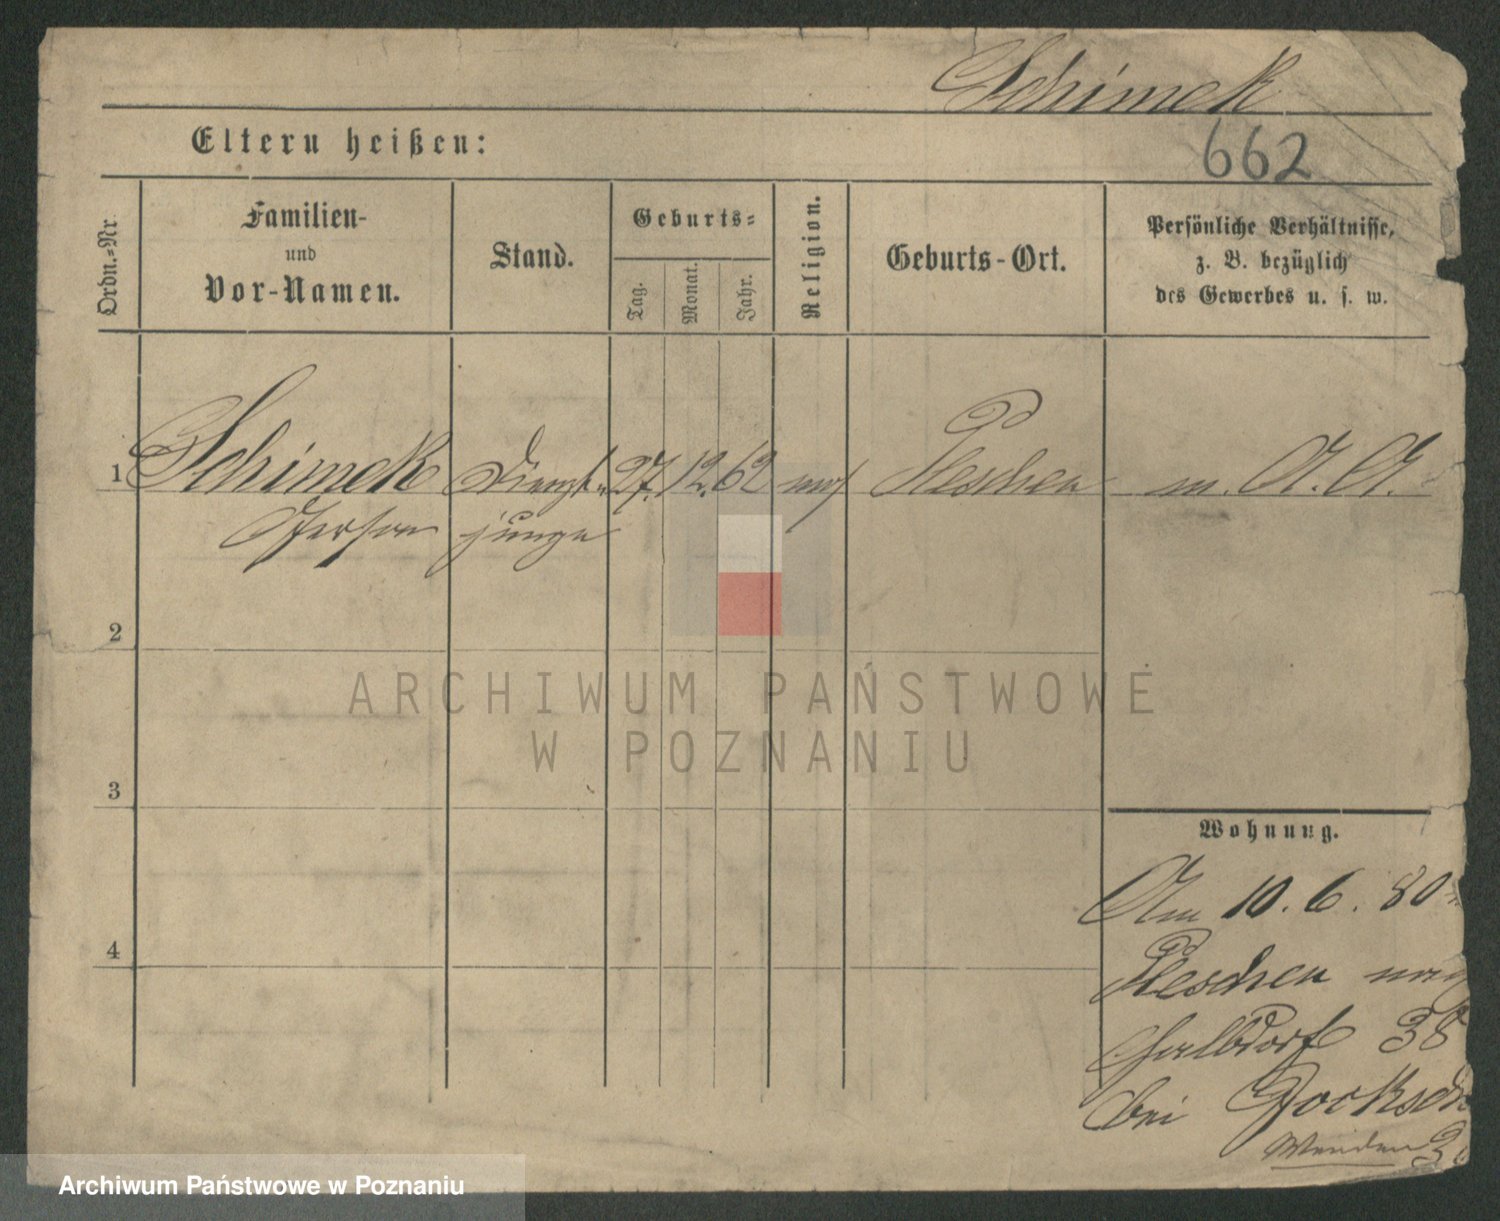 Schimek
662
Eltern heißen:
Ordn.-Nr.
Familien-
und
Vor-Namen.
Stand.
Geburts-
Tag.
Monat.
Jahr.
Religion.
Geburts-Ort.
Persönliche Verhältnisse,
z. B. bezüglich
des Gewerbes u. s. w.
1 Schimek Dienst- 27. 12. 62 mos Pleschen m. A. A.
Gerson junge
2
3
4
ARCHIWUM PAŃSTWOWE
W POZNANIU
Wohnung.
Am 10. 6. 80
Pleschen
Halbdorf 38
bei
Archiwum Państwowe w Poznaniu